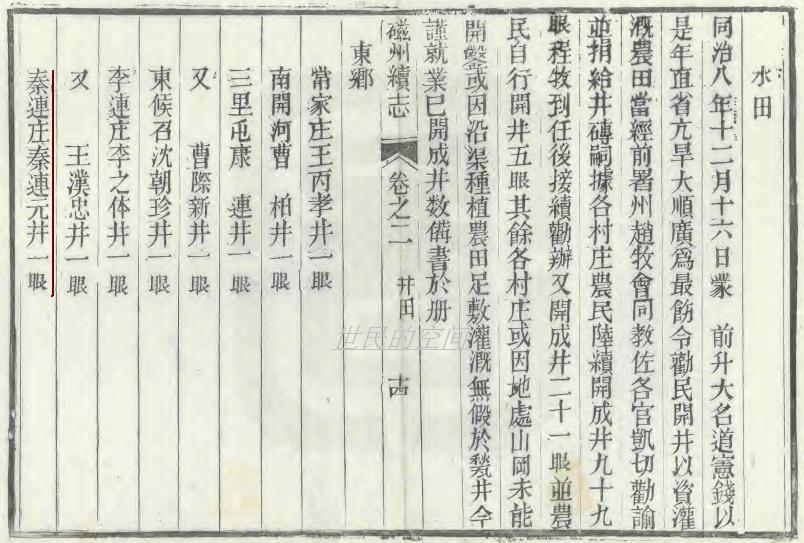 水田
同治八年十二月十六日蒙　前升大名道憲錢以
是年直省亢旱大順廣爲最飭令勸民開井以資灌
溉農田當經前署州趙牧會同教佐各官凱切勸諭
並捐給井磚嗣據各村庄農民陸續開成井九十九
眼程牧到任後接續勸辦又開成井二十一眼並農
民自行開井五眼其餘各村庄或因地處山岡未能
開鑿或因沿渠種植農田足敷灌溉無假於甃井今
謹就業已開成井数備書於册
磁州續志　卷之二　井田　十四
東鄉
常家庄王丙孝井一眼
南開河曹　柏井一眼
三里屯康　連井一眼
又　曹際新井一眼
東候召沈朝珍井一眼
李連庄李之体井一眼
又　王漢忠井一眼
秦連庄秦連元井一眼
世民的空间